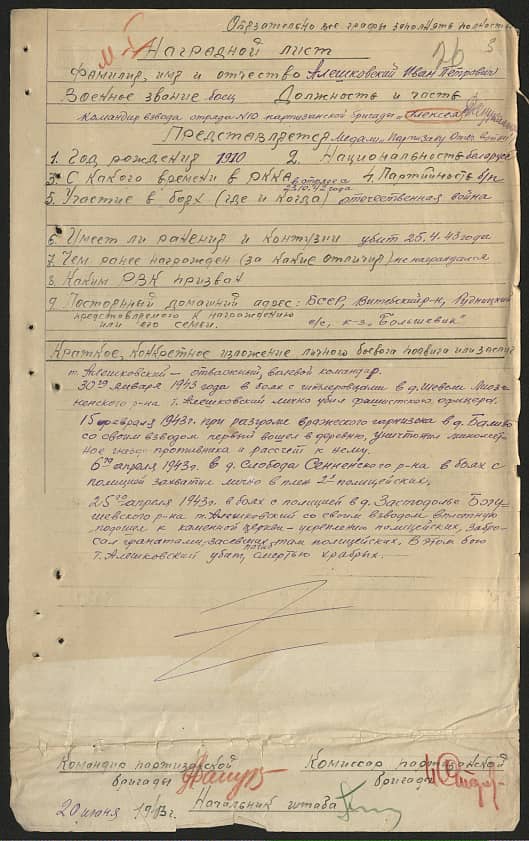 Обязательно все графы заполнять полностью
Наградной лист
Фамилия, имя и отчество Алешковский Иван Петрович
Военное звание боец Должность и часть
Командир взвода отряда №10 партизанской бригады „Алексея"
Представляется Медали „Партизану Отеч. войны"
1. Год рождения 1910 2. Национальность белорус
3. С какого времени в РККА 4. Партийность б/п
23.10.42 года
5. Участие в боях (где и когда) отечественная война
6. Имеет ли ранения и контузии убит 25.4.43 года
7. Чем ранее награжден (за какие отличия) не награждался
8. Каким РВК призван
9. Постоянный домашний адрес: БССР, Витебский р-н,
представляемого к награждению
или его семьи. с/с, к-з „Большевик"
Краткое, конкретное изложение личного боевого подвига или заслуг
т. Алешковский – отважный, волевой командир.
30го января 1943 года в боях с гитлеровцами в д. Шеволи Лиоз-
ненского р-на т. Алешковский лично убил фашистского офицера.
15 февраля 1943г. при разгроме вражеского гарнизона в д.
со своим взводом первый вошел в деревню, уничтожил пулемет-
ное гнездо противника и расчет к нему.
6го апреля 1943г. в д. Слобода Сенненского р-на в боях с
полицией захватил лично в плен 2х полицейских.
25го апреля 1943г. в боях с полицией в д. Застодолье Богу-
шевского р-на т. Алешковский со своим взводом вплотную
подошел к каменной церкви – укреплению полицейских, забро-
сал гранатами засевших там полицейских. В этом бою
т. Алешковский убит, погиб смертью храбрых.
Командир партизанской Комиссар партизанской
бригады бригады
20 июня 1943г. Начальник штаба